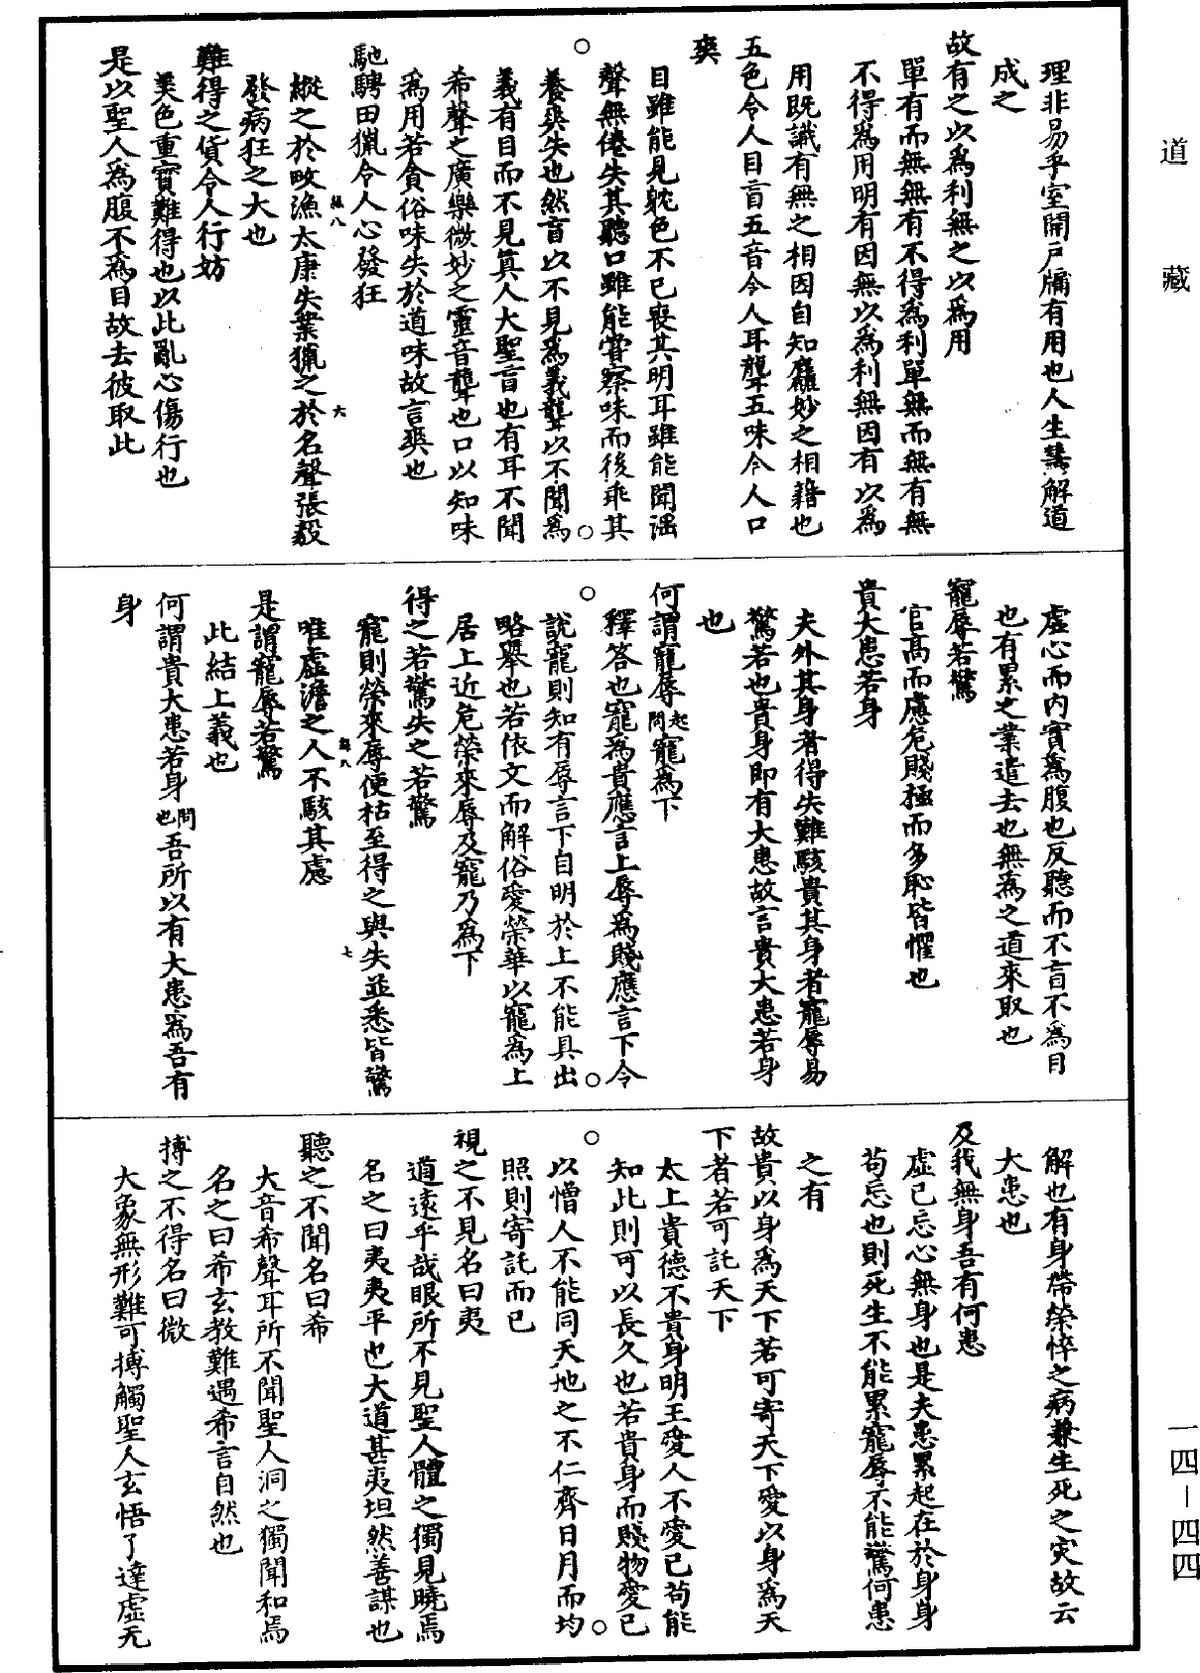 道藏
理非易乎室開戶牖有用也人生慧解道
成之
故有之以爲利無之以爲用
單有而無無有不得爲利單無而無有無
不得爲用明有因無以爲利無因有以爲
用既識有無之相因自知麤妙之相藉也
五色令人目盲五音令人耳聾五味令人口
爽
目雖能見躭色不已喪其明耳雖能聞滛
聲無倦失其聽口雖能甞察味而後乖其
養爽失也然盲以不見爲義聾以不聞爲
義有目而不見真人大聖盲也有耳不聞
希聲之廣樂微妙之靈音聾也口以知味
爲用若貪俗味失於道味故言爽也
馳騁田獵令人心發狂
縱之於畋漁太康失業獵之於名聲張毅
發病狂之大也
難得之貨令人行妨
美色重寳難得也以此亂心傷行也
是以聖人爲腹不爲目故去彼取此
虛心而內實爲腹也反聽而不盲不爲目
也有累之業遣去也無爲之道來取也
寵辱若驚
官高而慮危賤極而多恥皆懼也
貴大患若身
夫外其身者得失難駭貴其身者寵辱易
驚若也貴身即有大患故言貴大患若身
也
何謂寵辱起問寵爲下
釋答也寵爲貴應言上辱爲賤應言下今
說寵則知有辱言下自明於上不能具出
略舉也若依文而解俗愛榮華以寵爲上
居上近危榮來辱及寵乃爲下
得之若驚失之若驚
寵則榮來辱便枯至得之與失並悉皆驚
唯虛澹之人不駭其慮
是謂寵辱若驚
此結上義也
何謂貴大患若身問也吾所以有大患爲吾有
身
解也有身帶榮悴之病兼生死之灾故云
大患也
及我無身吾有何患
虛己忘心無身也是夫患累起在於身身
苟忘也則死生不能累寵辱不能驚何患
之有
故貴以身爲天下若可寄天下愛以身爲天
下者若可託天下
太上貴德不貴身明王愛人不愛己苟能
知此則可以長久也若貴身而賤物愛己
以憎人不能同天地之不仁齊日月而均
照則寄託而已
視之不見名曰夷
道遠乎哉眼所不見聖人體之獨見曉焉
名之曰夷夷平也大道甚夷坦然善謀也
聽之不聞名曰希
大音希聲耳所不聞聖人洞之獨聞和焉
名之曰希玄教難遇希言自然也
摶之不得名曰微
大象無形難可摶觸聖人玄悟了達虛无
一四－四四